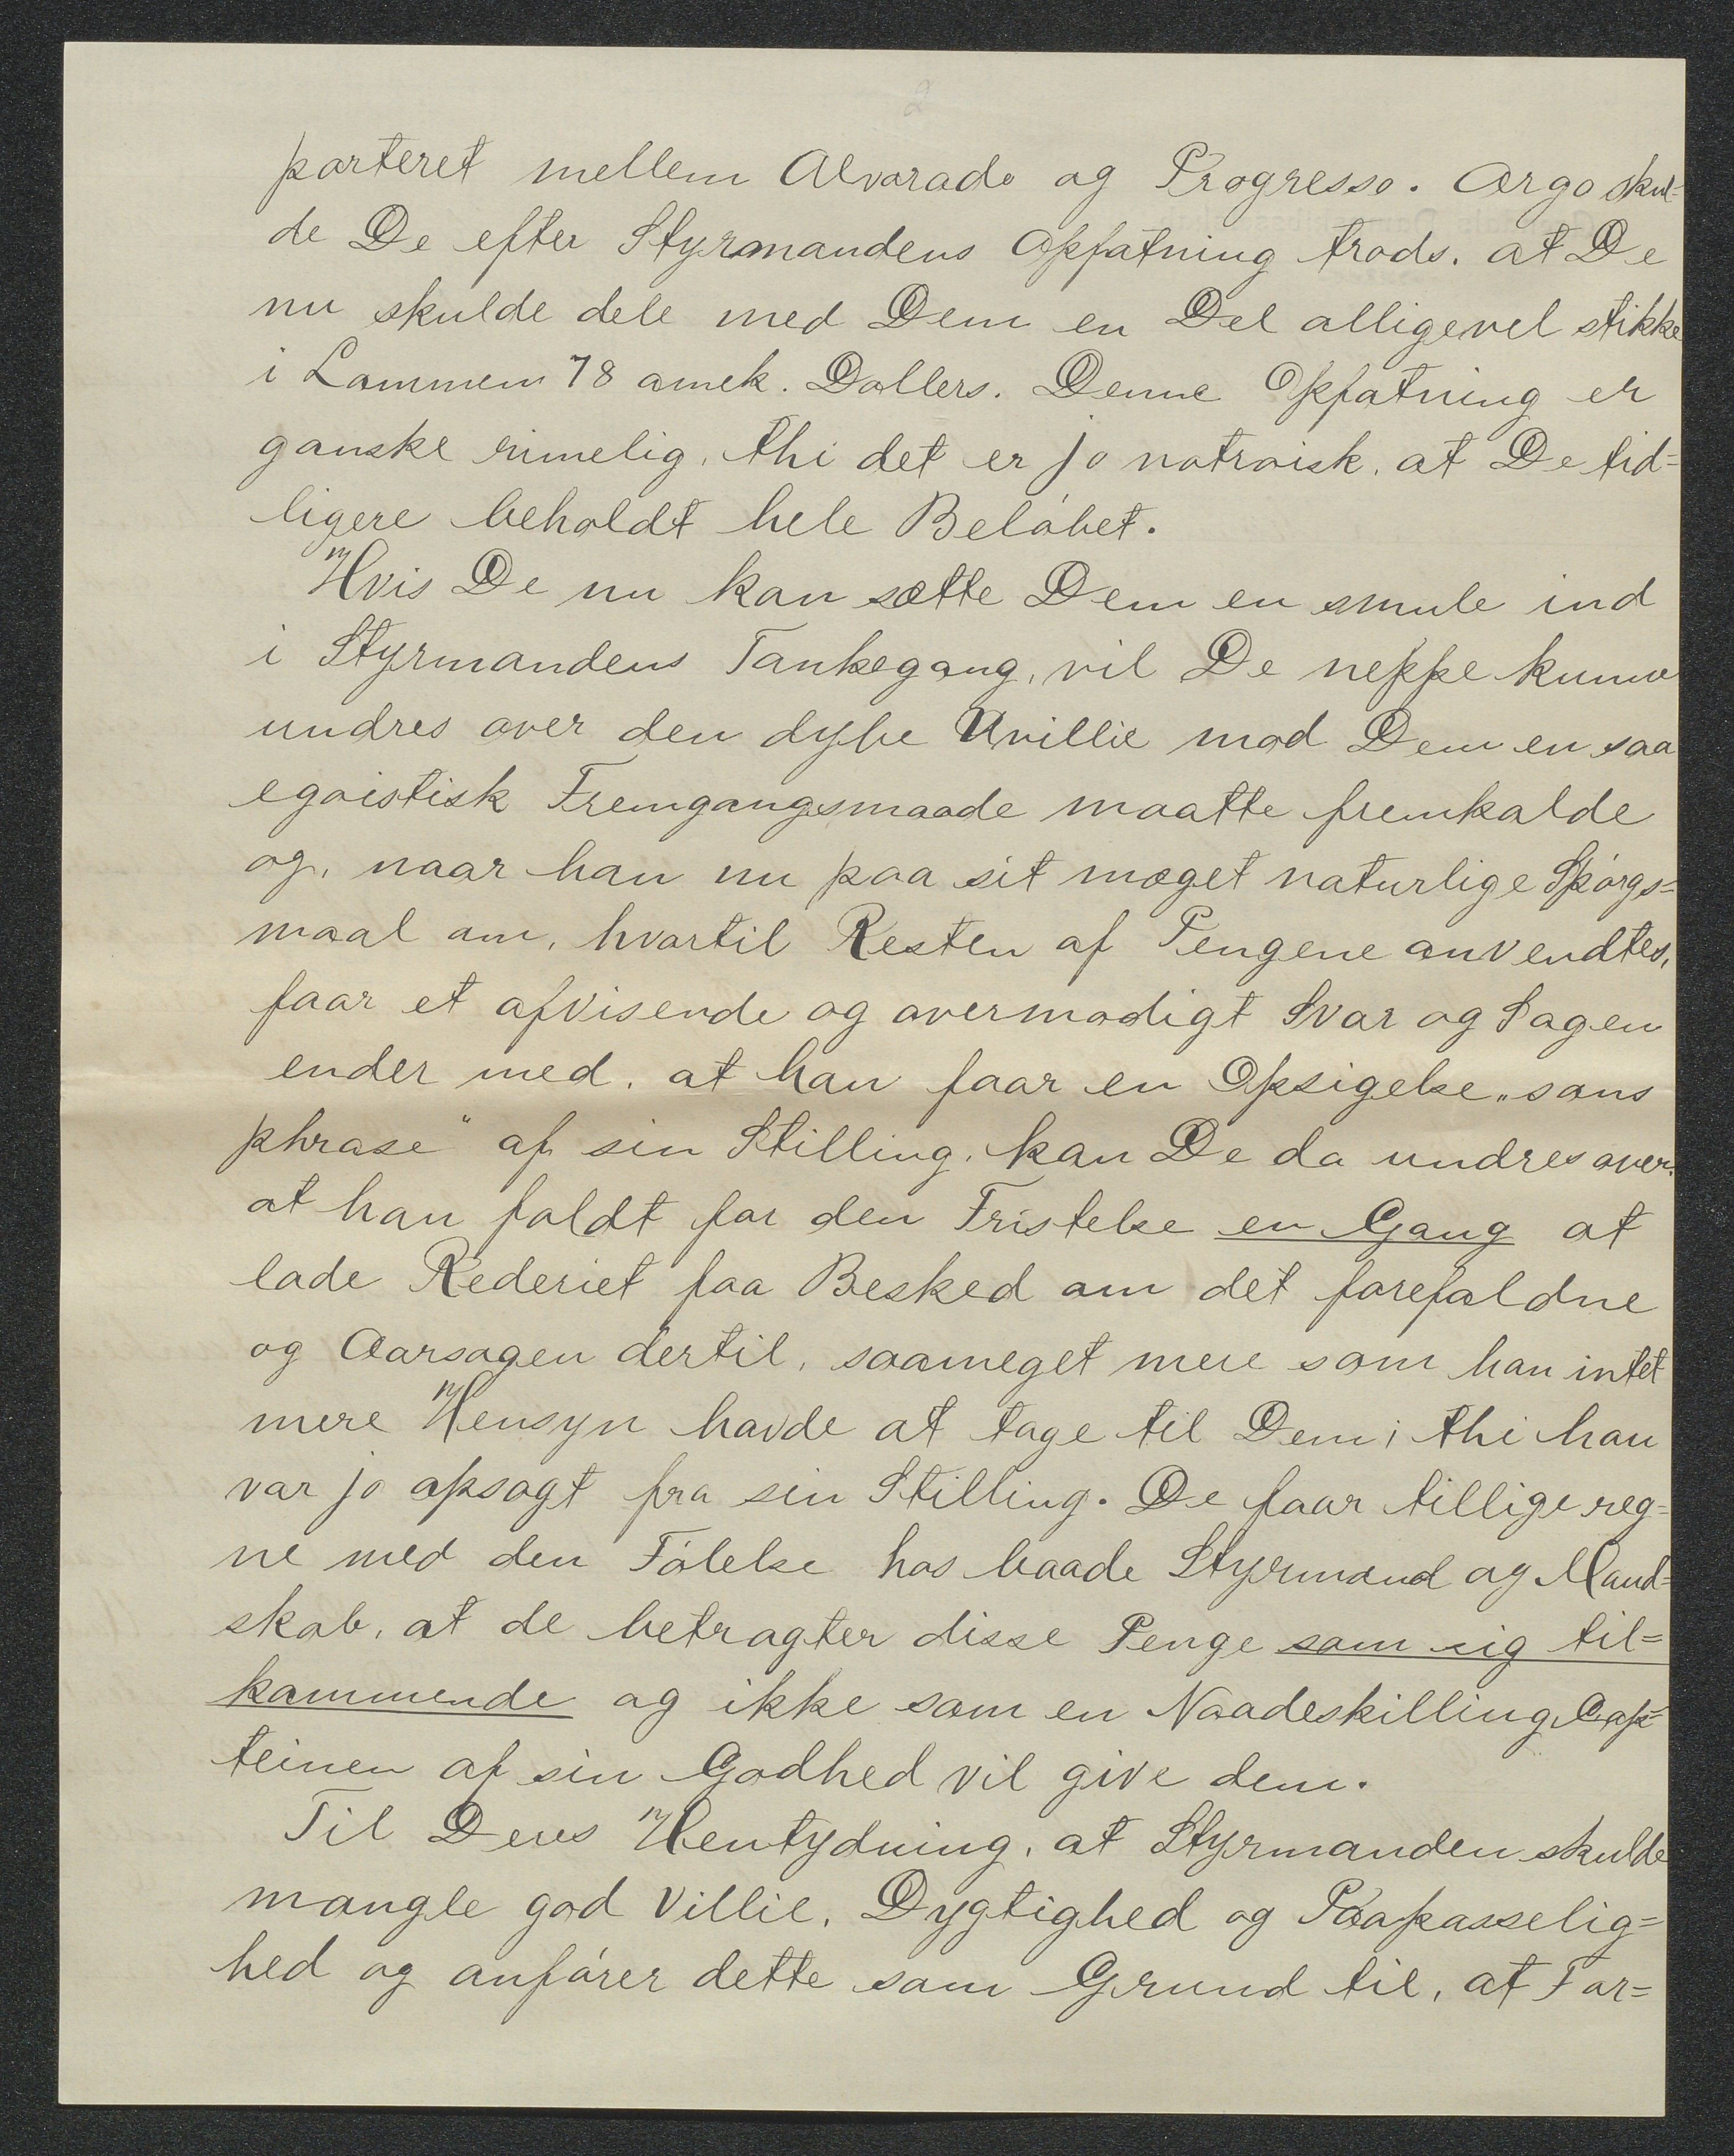 2
porteret mellem Alvarado og Progresso. Ergo skul=
de De efter Styrmandens Opfatning trods, at De
nu skulde dele med Dem en Del alligevel stikke
i Lommen 78 amek. Dollers. Denne Opfatning er
ganske rimelig, thi det er jo notroisk, at De tid=
ligere beholdt hele Beløbet.
Hvis De nu kan sætte Dem en smule ind
i Styrmandens Tankegang, vil De neppe kunne
undres over den dybe Uvillie mod Dem en saa
egoistisk Fremgangsmaade maatte fremkalde
og, naar han nu paa sit meget naturlige Spørgs=
maal om, hvortil Resten af Pengene anvendtes,
faar et afvisende og overmodigt Svar og Sagen
ender med, at han faar en Opsigelse „sans
phrase" af sin Stilling, kan De da undres over,
at han faldt for den Fristelse en Gang at
lade Rederiet faa Besked om det forefaldne
og Aarsagen dertil, saameget mere som han intet
mere Hensyn havde at tage til Dem; thi han
var jo opsagt fra sin Stilling. De faar tillige reg=
ne med den Følelse hos baade Styrmand og Mand=
skab, at de betragter disse Penge som sig til=
kommende og ikke som en Naadeskilling, Cap=
teinen af sin Godhed vil give dem.
Til Deres Hentydning, at Styrmanden skulde
mangle god Villie, Dygtighed og Paapasselig=
hed og anfører dette som Grund til, at For=